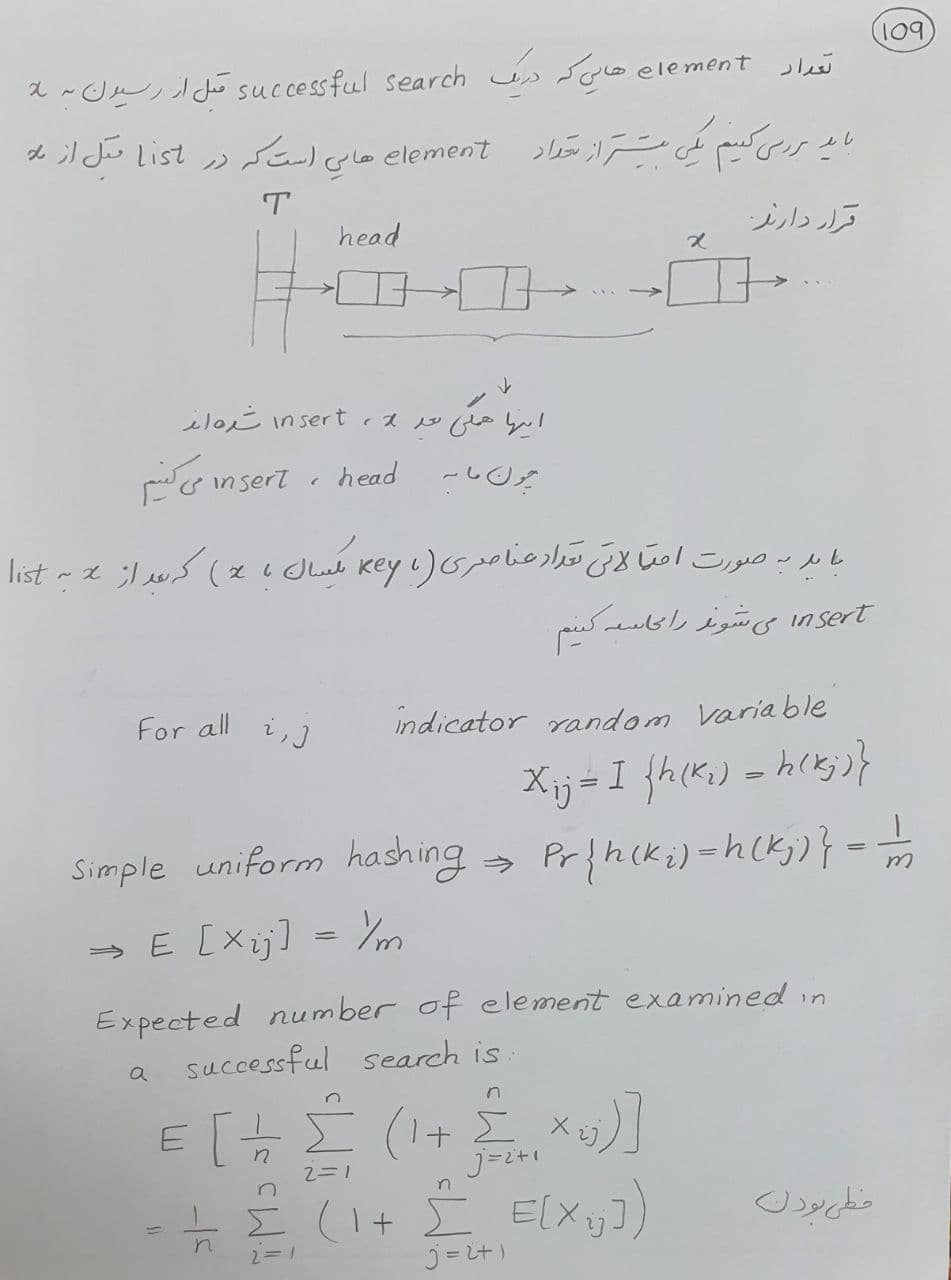 109
تعداد element هایی که در یک successful search قبل از رسیدن به x
باید بررسی کنیم یکی بیشتر از تعداد element هایی است که در list قبل از x
قرار دارند.
T
head
x
... ...
اینها همگی بعد x، insert شده‌اند
چون ما به head، insert می‌کنیم
باید به صورت احتمالاتی تعداد عناصری (با key یکسان با x) که بعد از x به list
insert می‌شوند را محاسبه کنیم
For all i,j indicator random variable
Xij = I {h(ki) = h(kj)}
Simple uniform hashing ⇒ Pr{h(ki) = h(kj)} = 1/m
⇒ E [Xij] = 1/m
Expected number of element examined in
a successful search is:
E [ 1/n Σ_{i=1}^{n} (1 + Σ_{j=i+1}^{n} Xij)]
= 1/n Σ_{i=1}^{n} (1 + Σ_{j=i+1}^{n} E[Xij]) خطی بودن